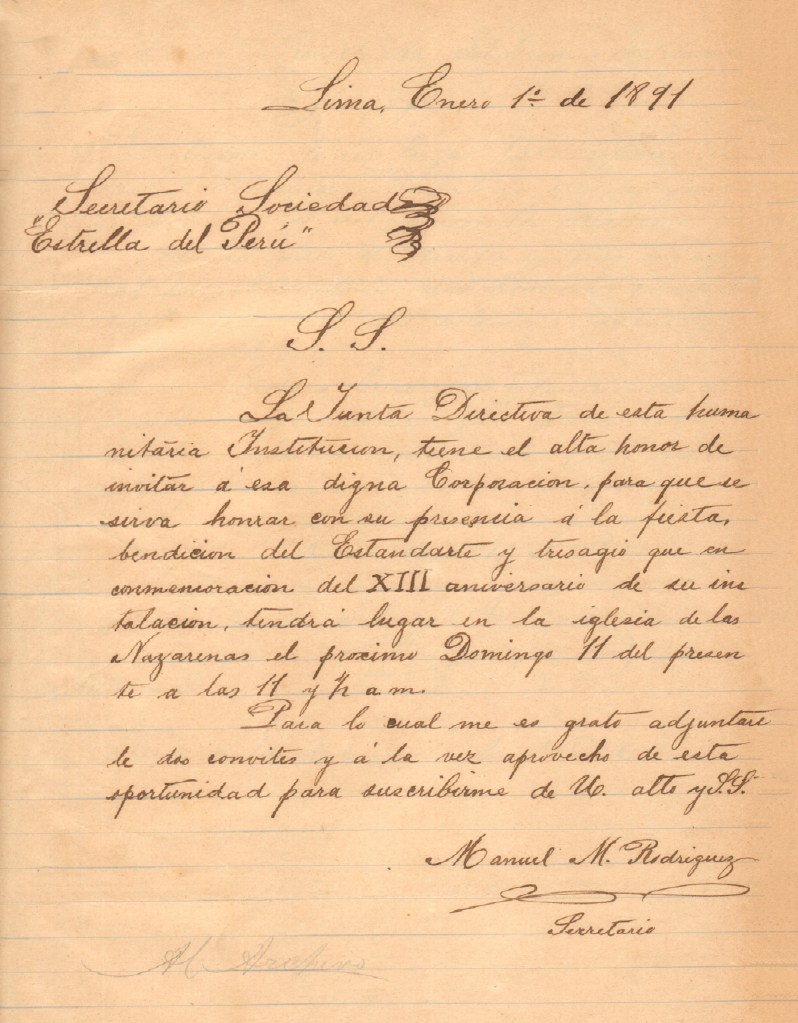 Lima, Enero 1º de 1891
Secretario Sociedad
"Estrella del Perú"
S. S.
La Junta Directiva de esta huma
nitaria Institucion, tiene el alta honor de
invitar á esa digna Corporacion, para que se
sirva honrar con su presencia á la fiesta,
bendicion del Estandarte y tresagio que en
conmemoracion del XIII aniversario de su ins
talacion, tendrá lugar en la iglesia de las
Nazarenas el proximo Domingo 11 del presen
te a las 11 y ½ a m.
Para lo cual me es grato adjuntar
le dos convites y á la vez aprovecho de esta
oportunidad para suscribirme de U. atto y S.S.
Manuel M. Rodriguez
Secretario